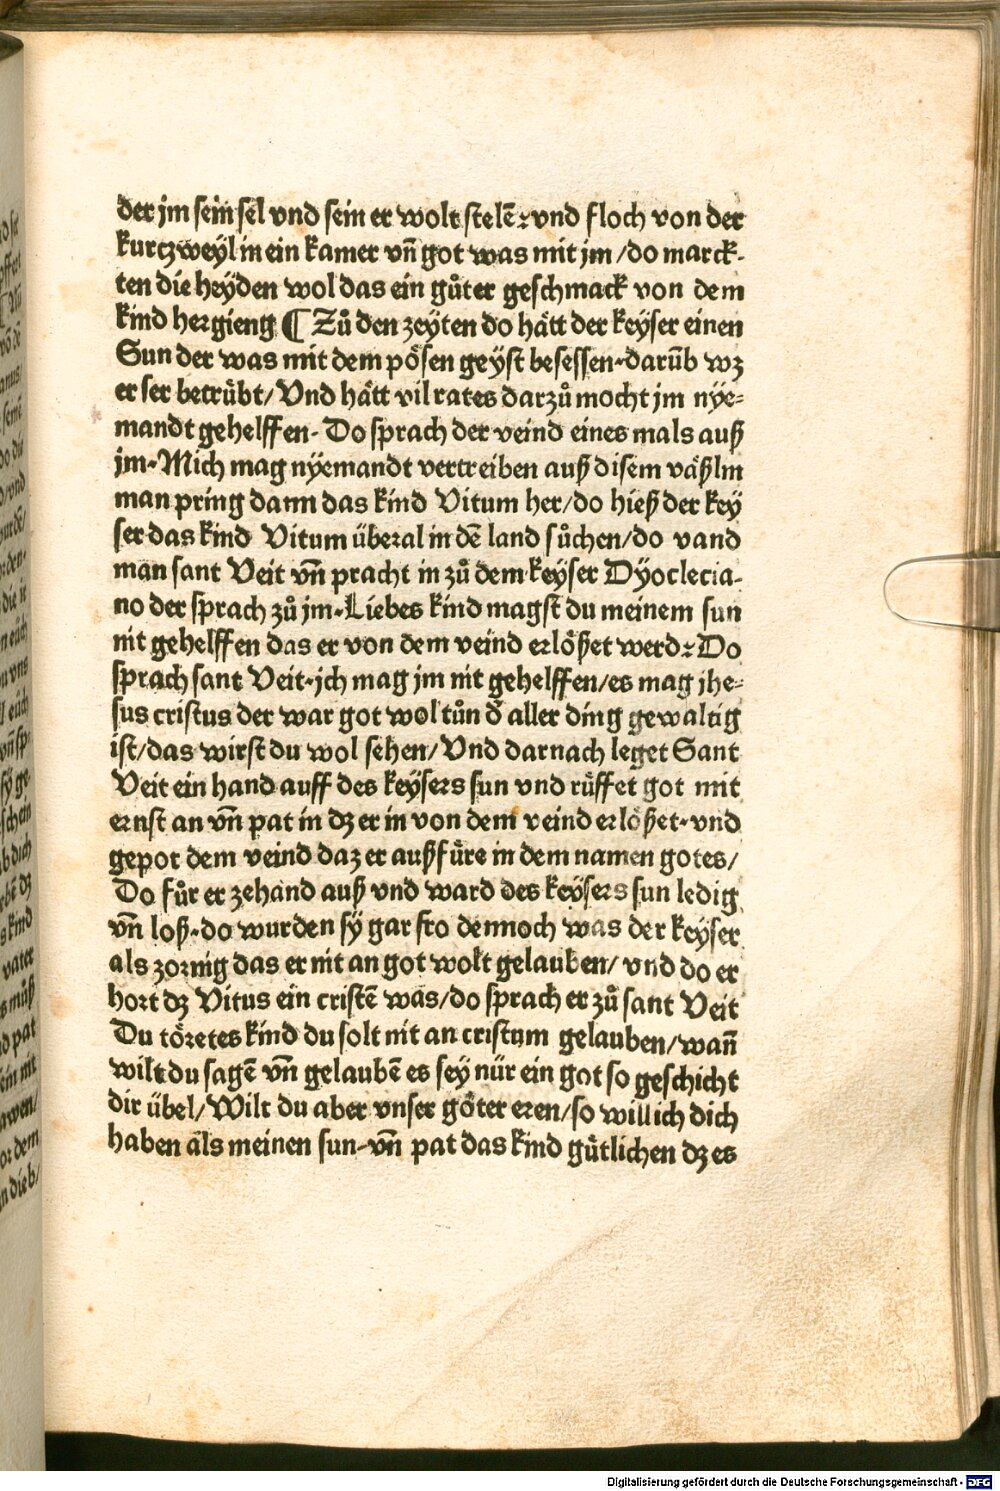 der jm sein sel vnd sein er wolt stelē: vnd floch von der
kurczweyl in ein kamer vn̄ got was mit jm /do marck-
ten die heÿden wol das ein gůter geschmack von dem
kind hergieng ¶ Zů den zeÿten do hått der keÿser einen
Sun der was mit dem pôsen geÿst besessen·darūb wz
er ser betrůbt/ Vnd hått vil rates darzů mocht jm nÿe=
mandt gehelffen· Do sprach der veind eines mals auß
jm·Mich mag nÿemandt vertreiben auß disem våßlin
man pring dann das kind Vitum her/do hieß der key
ser das kind Vitum überal in dē land sůchen/do vand
man sant Veit vn̄ pracht in zů dem keÿser Dÿoclecia-
no der sprach zů jm·Liebes kind magst du meinem sun
nit gehelffen das er von dem veind erlôßet werd: Do
sprach sant Veit·jch mag jm nit gehelffen/es mag jhe=
sus cristus der war got wol tůn d̄ aller ding gewaltig
ist/das wirst du wol sehen/ Vnd darnach leget Sant
Veit ein hand auff des keÿsers sun vnd růffet got mit
ernst an vn̄ pat in dz er in von dem veind erlôßet·vnd
gepot dem veind daz er außfůre in dem namen gotes/
Do fůr er zehand auß vnd ward des keÿsers sun ledig
vn̄ loß·do wurden sÿ gar fro dennoch was der keÿser
als zornig das er nit an got wolt gelauben/ vnd do er
hort dz Vitus ein cristē was/do sprach er zů sant Veit
Du tôretes kind du solt nit an cristum gelauben/wan̄
wilt du sagē vn̄ gelaubē es sey nür ein got so geschicht
dir übel/ Wilt du aber vnser gôter eren/so will ich dich
haben als meinen sun·vn̄ pat das kind gůtlichen dz es
Digitalisierung gefördert durch die Deutsche Forschungsgemeinschaft - DFG